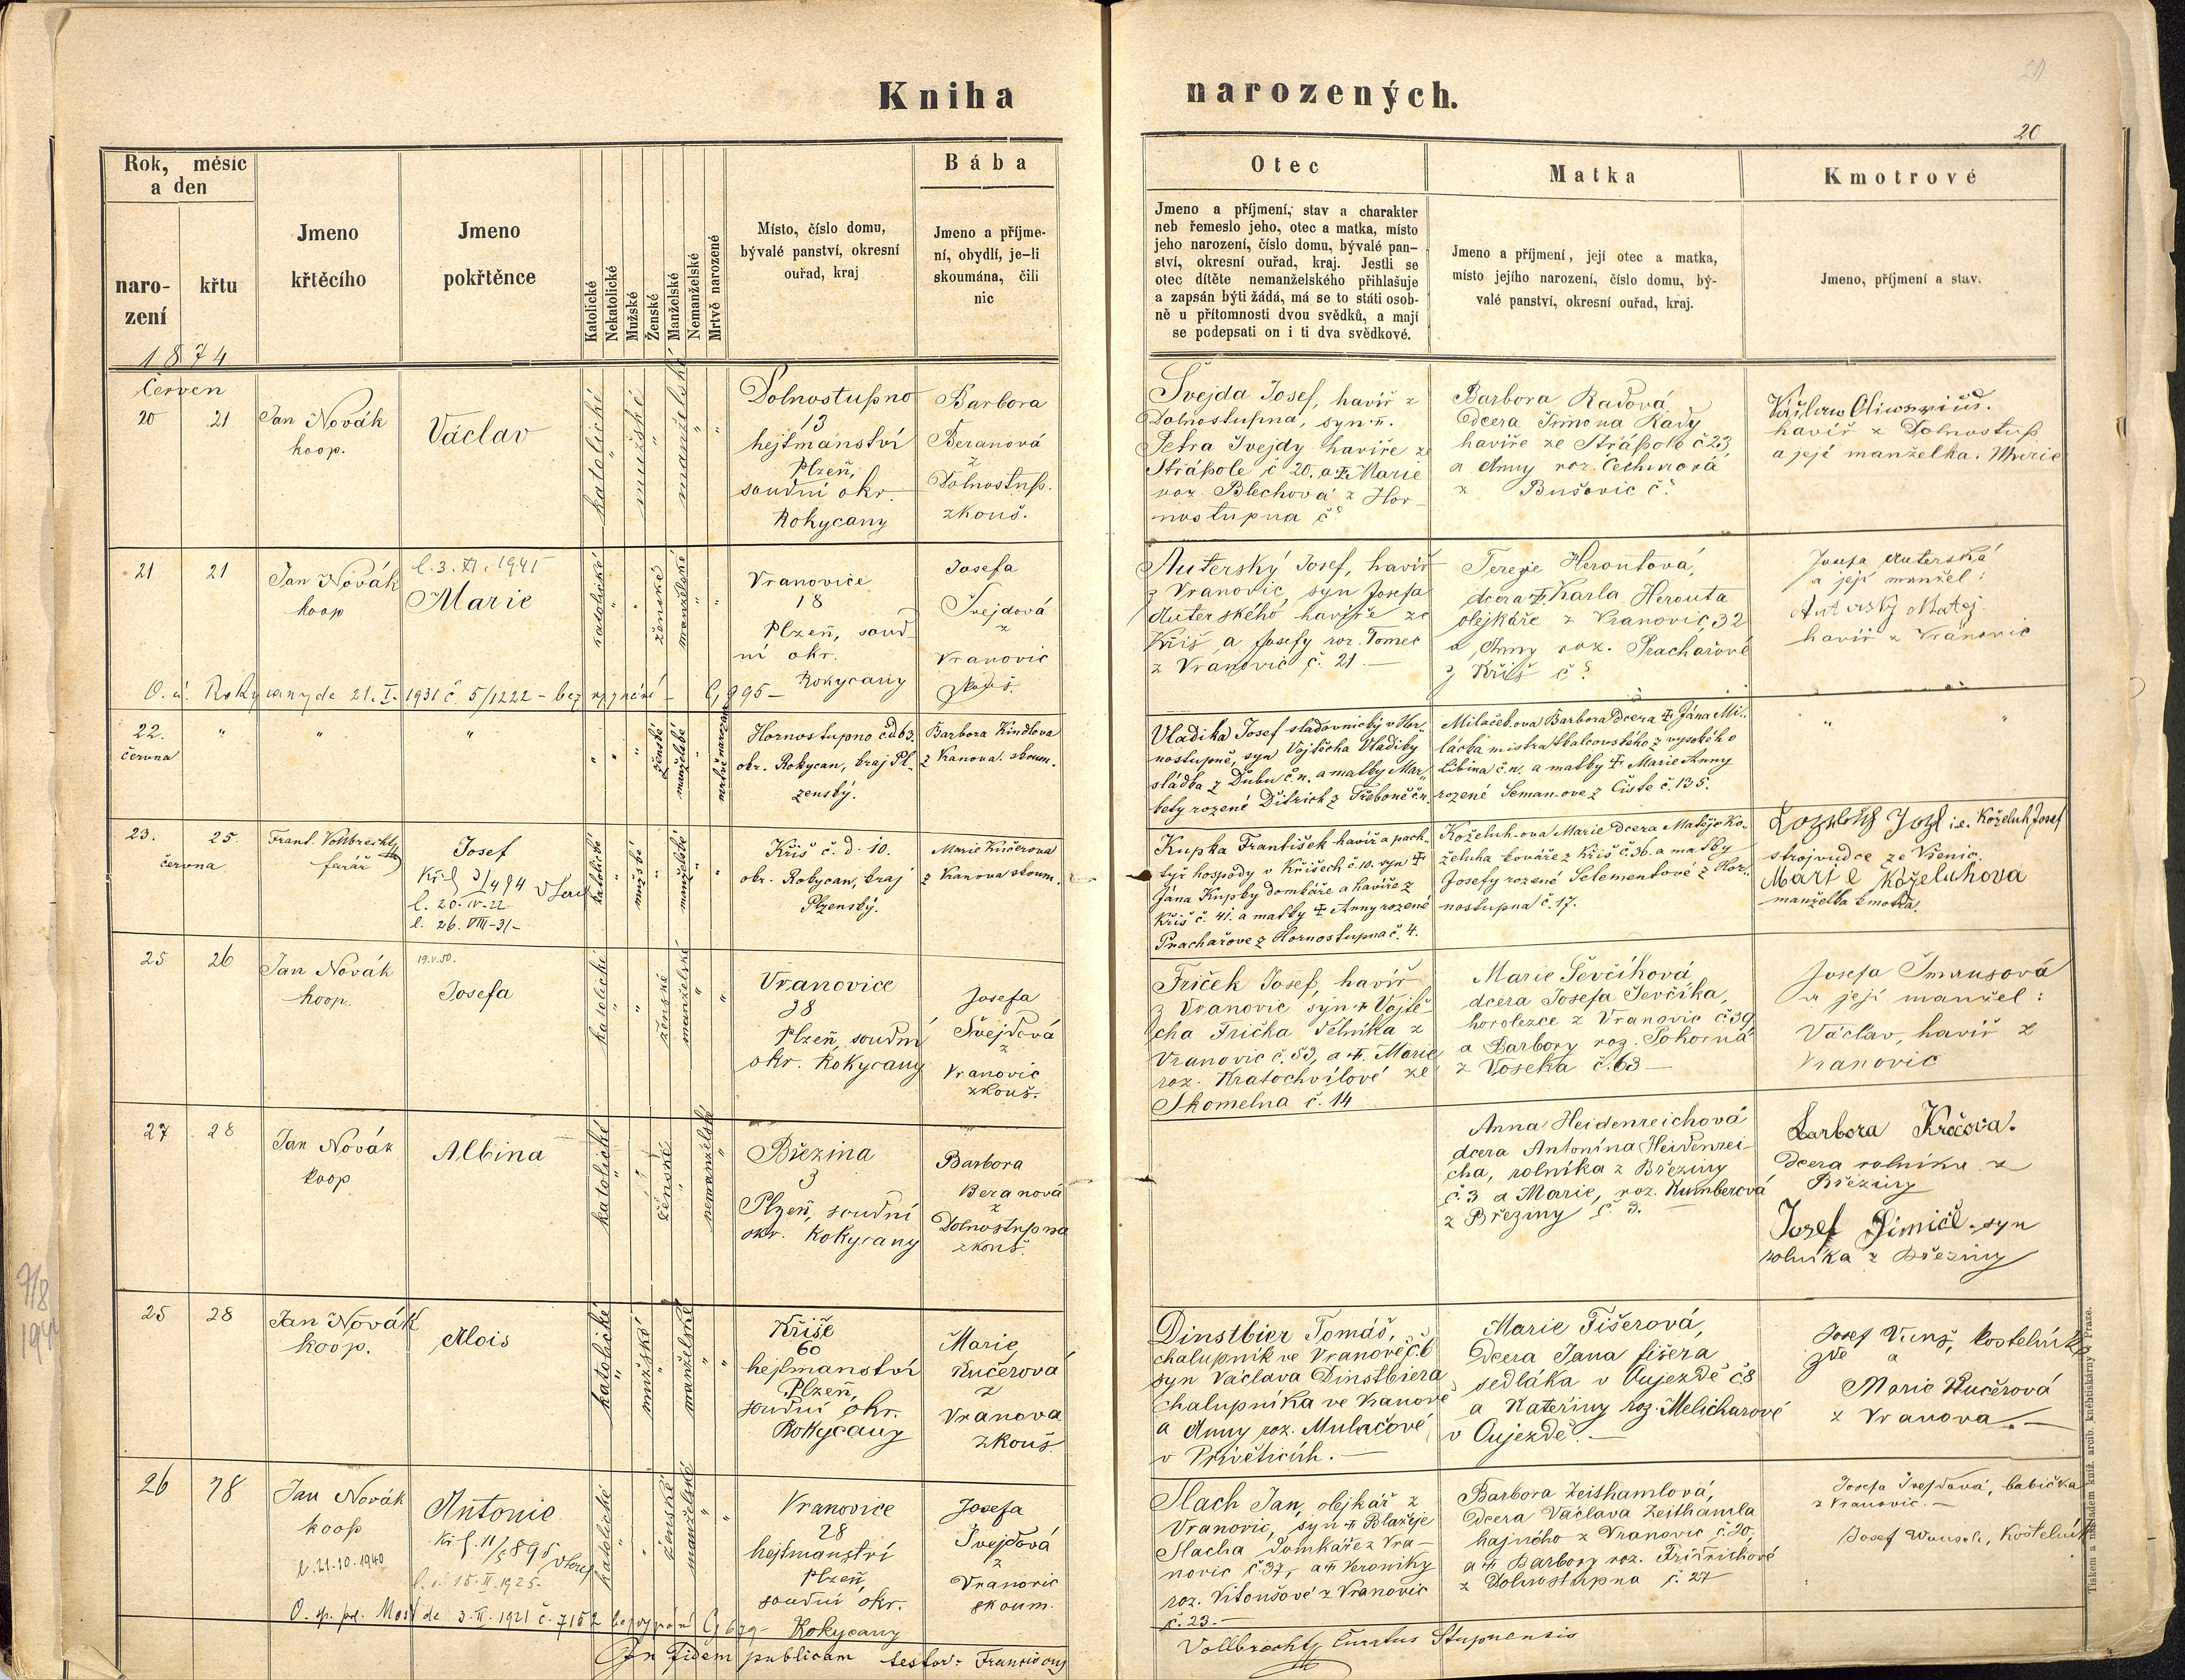 Kniha narozených.
20
Rok, měsíc
a den
naro-
zení
křtu
1874
Jmeno
křtěcího
Jmeno
pokřtěnce
Katolické
Nekatolické
Mužské
Ženské
Manželské
Nemanželské
Mrtvě narozené
Místo, číslo domu,
bývalé panství, okresní
ouřad, kraj
Bába
Jmeno a příjme-
ní, obydlí, je-li
skoumána, čili
nic
Otec
Jmeno a příjmení, stav a charakter
neb řemeslo jeho, otec a matka, místo
jeho narození, číslo domu, bývalé pan-
ství, okresní ouřad, kraj. Jestli se
otec dítěte nemanželského přihlašuje
a zapsán býti žádá, má se to státi osob-
ně u přítomnosti dvou svědků, a mají
se podepsati on i ti dva svědkové.
Matka
Jmeno a příjmení, její otec a matka,
místo jejího narození, číslo domu, bý-
valé panství, okresní ouřad, kraj.
Kmotrové
Jmeno, příjmení a stav.
Červen
20 21
Jan Novák
koop.
Václav
katolické
"
mužské
"
manželské
"
"
Dolnostupno
13
hejtmanství
Plzeň,
soudní okr.
Rokycany
Barbora
Beranová
z
Dolnostup.
zkouš.
Švejda Josef, havíř z
Dolnostupna, syn
Petra Švejdy havíře ze
Strápole č 20. a Marie
roz. Blechová z Hor-
nostupna č
Barbora Radová
dcera Šimona Rady
havíře ze Strápole č 23
a Anny roz. Čechurová
z Bušovic č
havíř z Dolnostup.
a její manželka. Marie
21 21
Jan Novák
koop
l. 3. XI. 1941
Marie
katolické
"
"
ženské
manželské
"
"
Vranovice
18
Plzeň, soud-
ní okr.
Rokycany
Josefa
Švejdová
z
Vranovic
zkouš.
O. ú. Rokycany de 21. I. 1931 č 5/1222 - bez vyznání -
Auterský Josef, havíř
z Vranovic, syn Josefa
Auterského havíře ze
Kříš a Josefy roz. Tomec
z Vranovic č. 21. —
Terezie Heroutová,
dcera Karla Herouta
olejkáře z Vranovic, 32
a Anny roz. Prachařové
z Kříš č
Josefa Auterská
a její manžel:
Auterský Matěj
havíř z Vranovic
22. "
června
"
"
"
"
"
ženské
manželské
mrtvě narozené
Hornostupno č.d 63.
okr. Rokycan, kraj Pl-
zenský.
Barbora Kindlova
z Vranova. skoum.
Vladika Josef sládovnický v Hor-
nostupně, syn Vojtěcha Vladiky
sládka z Dubu č.n. a matky Mar-
kety rozené Ditrich z Třeboně č.n.
Milačkova Barbora dcera Jána Mi-
láčka mistra skalcovského z vysokého
Libina č.n. a matky Marie Anny
rozené Seman-ove z Čiste č. 135.
"
"
23. 25.
června
Frant. Vollbrecht
farář
Josef
l. 20. IV. 22
l. 26. VIII - 31 -
katolické
"
mužské
"
manželské
"
"
Kříš č. d. 10.
okr. Rokycan, kraj
Plzenský.
Marie Kučerova
z Vranova skoum.
Kupka František havíř a pach-
týř hospody v Kříšech č. 10. syn
Jána Kupky domkáře a havíře z
Kříš č. 41. a matky Anny rozené
Prachařove z Hornostupna č. 4.
Koželuh-ova Marie dcera Matěje Ko-
želuha kováře z Kříš č. 36. a matky
Josefy rozené Selementové z Hor-
nostupna č. 17.
i.e. Koželuh Josef
strojvudce ze Všenic.
Marie Koželuhova
manželka kmotra.
25 26
Jan Novák
koop.
19.V.50.
Josefa
katolické
"
"
ženské
manželské
"
"
Vranovice
38
Plzeň, soudní
okr. Rokycany
Josefa
Švejdová
z
Vranovic
zkouš.
Friček Josef, havíř
z Vranovic syn Vojtě-
cha Frička dělníka z
Vranovic č. 53, a Marie
roz. Kratochvílové ze
Skomelna č. 14
Marie Ševčíková
dcera Josefa Ševčíka,
horolezce z Vranovic č 39
a Barbory roz. Pokorná
z Voseka č. 63 —
Josefa Šmausová
a její manžel:
Václav, havíř z
Vranovic
27 28
Jan Novák
koop
Albina
katolické
"
"
ženské
"
nemanželské
"
Březina
3
Plzeň, soudní
okr. Rokycany
Barbora
Beranová
z
Dolnostupna
zkouš.
Anna Heidenreichová
dcera Antonína Heidenrei-
cha, rolníka z Březiny
č. 3 a Marie, roz. Kumberová
z Březiny č 3. —
Barbora Krčova.
dcera rolníka z
Březiny
Josef syn
rolníka z Březiny
25 28
Jan Novák
koop.
Alois
katolické
"
mužské
"
manželské
"
"
Kříše
60
hejtmanství
Plzeň,
soudní okr.
Rokycany
Marie
Kučerová
z
Vranova
zkouš.
Dinstbier Tomáš,
chalupník ve Vranově č. 6
syn Václava Dinstbiera
chalupníka ve Vranově
a Anny roz. Mulačové
v Přívěticích. —
Marie Fišerová,
dcera Jana fišera
sedláka v Oujezdě č 8
a Kateřiny roz. Melicharové
v Oujezdě. —
Josef Vunš, kostelník
zde a
Marie Kučerová
z Vranova. —
26 28
Jan Novák
koop
l. 21.10.1940
Antonie
l. 15. II. 1925.
katolické
"
"
ženské
manželské
"
"
Vranovice
28
hejtmanství
Plzeň,
soudní okr.
Rokycany
Josefa
Švejdová
z
Vranovic
skoum.
Slach Jan, olejkář z
Vranovic, syn Blažeje
Slacha domkáře z Vra-
novic č. 37, a Veroniky
roz. Vitoušové z Vranovic
č. 23. —
Barbora Zeishamlová,
dcera Václava Zeithamla
hajného z Vranovic č 20,
a Barbory roz. Fridrichové
z Dolnostupna č. 27
Josefa Švejdová, babička
z Vranovic. —
Josef Wunsch, Kostelník
Most de 3. II. 1921 č. 7152 bez vyznání
In fidem publicam testor: Franciscus
Vollbrecht, Curatus Stupnensis
Tiskem a nákladem kníž. arcib. knihtiskárny v Praze.